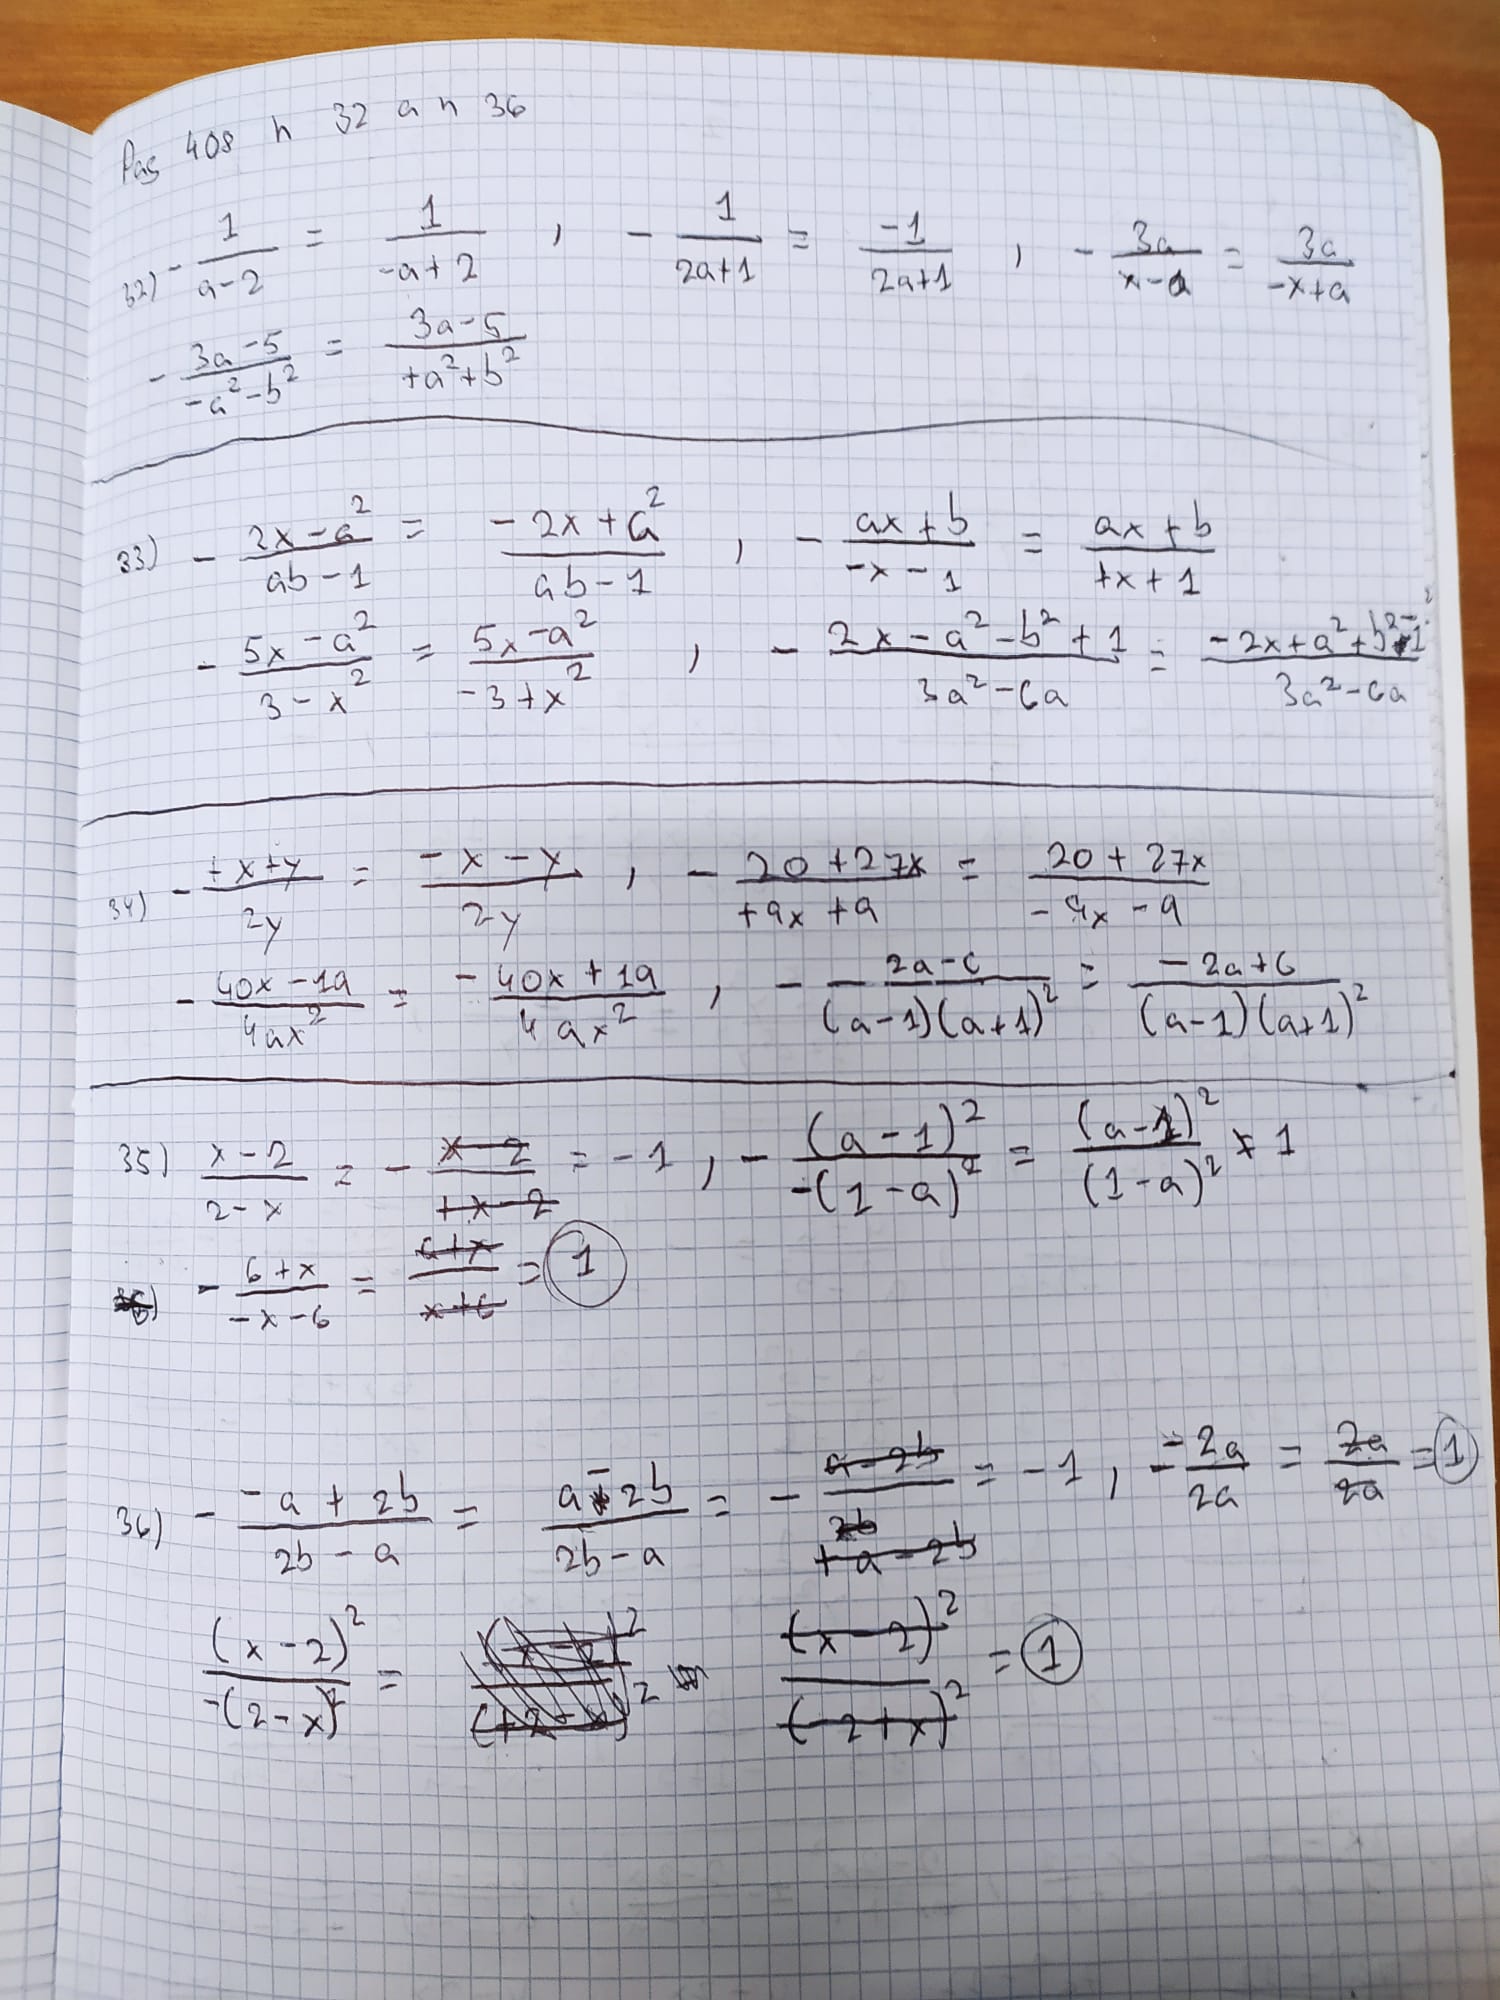 Pag 408 n 32 a n 36
32) - 1/(a-2) = 1/(-a+2) , - 1/(2a+1) = -1/(2a+1) , - 3a/(x-a) = 3a/(-x+a)
- (3a-5)/(-a²-b²) = (3a-5)/(+a²+b²)
33) - (2x-a²)/(ab-1) = (-2x+a²)/(ab-1) , - (ax+b)/(-x-1) = (ax+b)/(+x+1)
- (5x-a²)/(3-x²) = (5x-a²)/(-3+x²) , - (2x-a²-b²+1)/(3a²-6a) = (-2x+a²+b²-1)/(3a²-6a)
34) - (+x+y)/2y = (-x-y)/2y , - (20+27x)/(+9x+9) = (20+27x)/(-9x-9)
- (40x-19)/4ax² = (-40x+19)/4ax² , - (2a-6)/((a-1)(a+1)²) = (-2a+6)/((a-1)(a+1)²)
35) (x-2)/(2-x) = - (x-2)/(+x-2) = -1 , - (a-1)²/-(1-a)² = (a-1)²/(1-a)² * 1
- (6+x)/(-x-6) = (6+x)/(x+6) = 1
36) - (-a+2b)/(2b-a) = (a-2b)/(2b-a) = - (a-2b)/(+a-2b) = -1 , - -2a/2a = 2a/2a = 1
(x-2)²/-(2-x)² = (x-2)²/(-2+x)² = 1